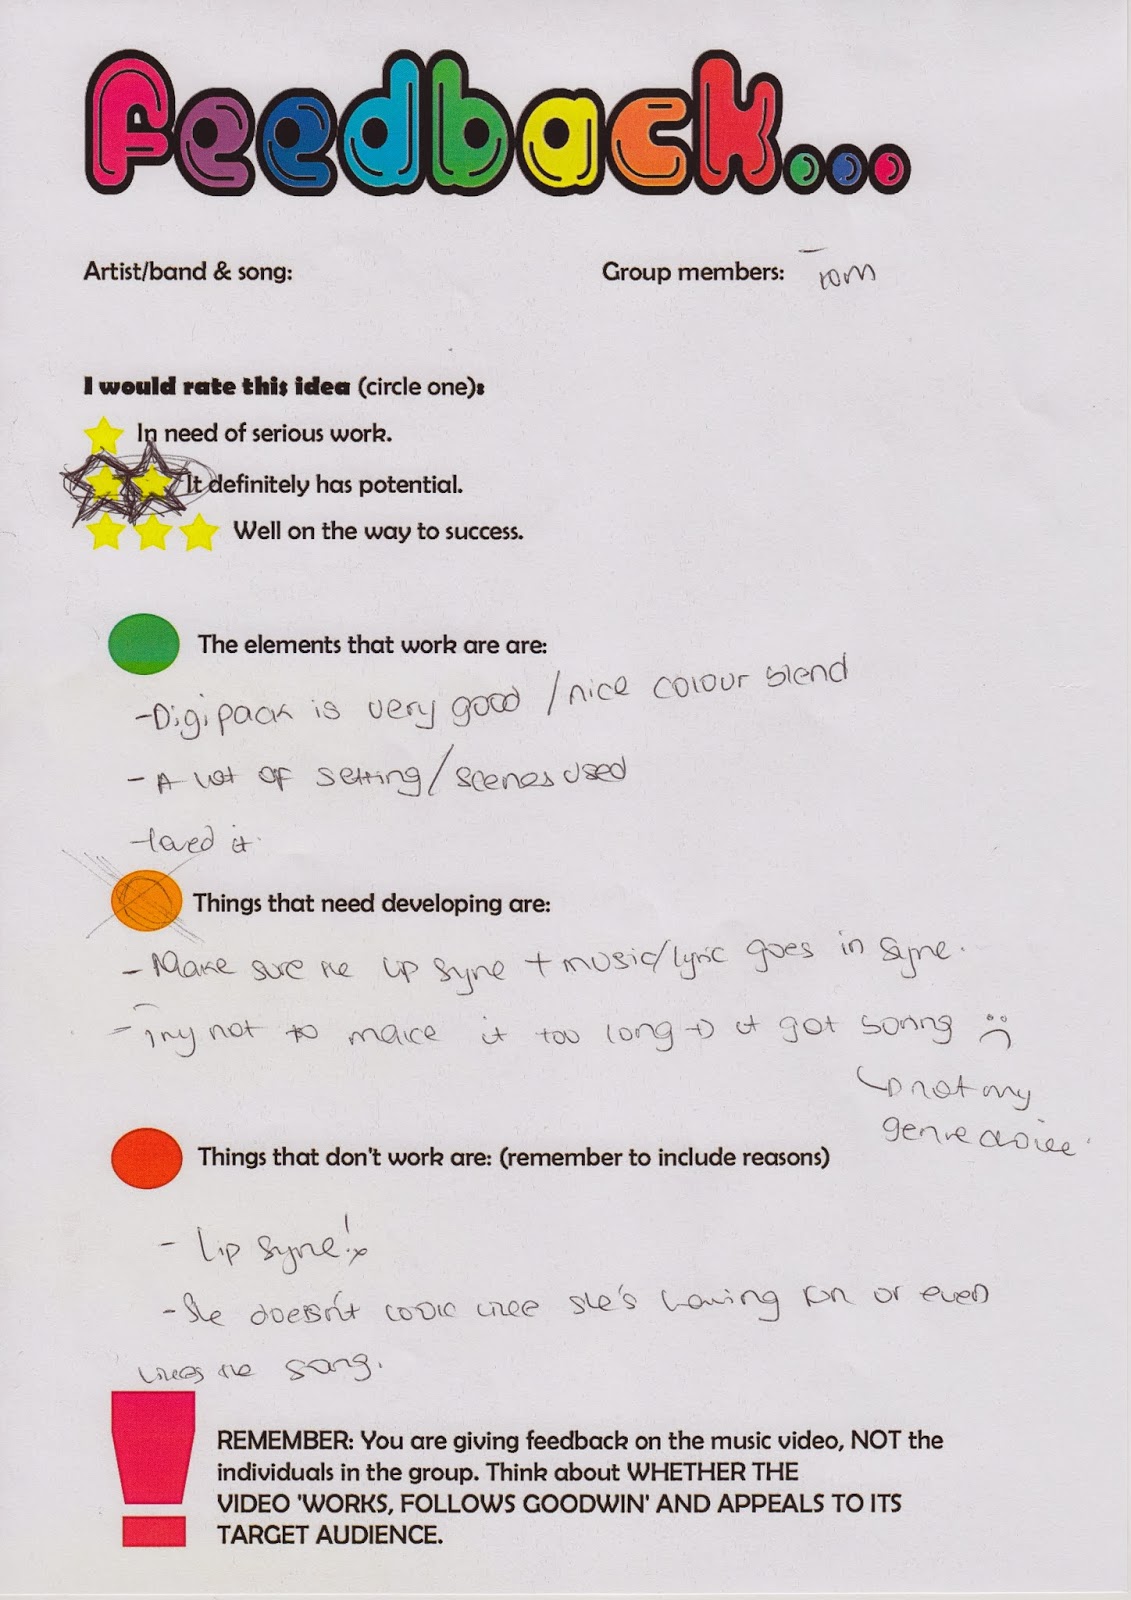 Feedback...
Artist/band & song:
Group members: Tom
I would rate this idea (circle one):
In need of serious work.
It definitely has potential.
Well on the way to success.
The elements that work are are:
-Digipack is very good / nice colour blend
- A lot of setting/scenes used
-loved it.
Things that need developing are:
- Make sure the lip sync + music/lyric goes in sync.
- Try not to make it too long → it got boring :(
↳ not my
genre choice.
Things that don't work are: (remember to include reasons)
- Lip sync!x
- She doesn't look like she's having fun or even
likes the song.
REMEMBER: You are giving feedback on the music video, NOT the
individuals in the group. Think about WHETHER THE
VIDEO 'WORKS, FOLLOWS GOODWIN' AND APPEALS TO ITS
TARGET AUDIENCE.